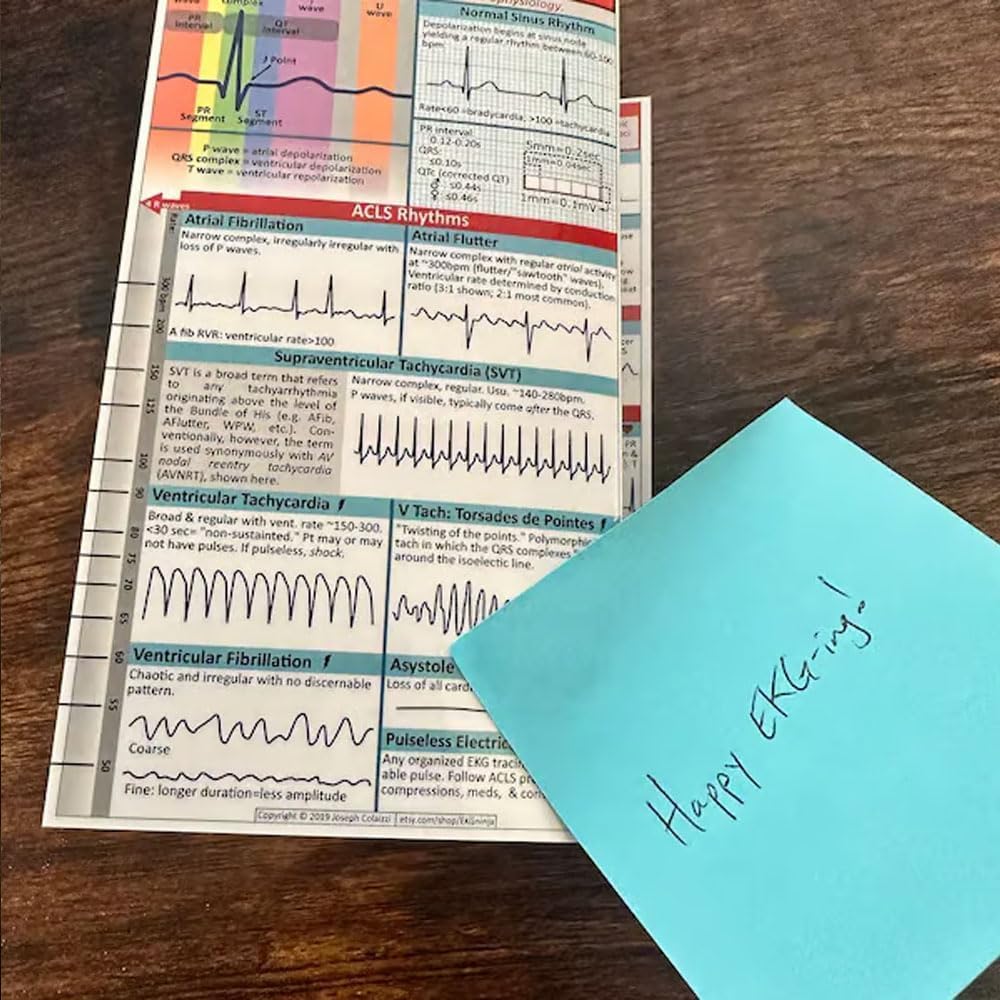 physiology.
wave
complex
wave
U
wave
PR
Interval
QT
Interval
J Point
PR
Segment
ST
Segment
P wave = atrial depolarization
QRS complex = ventricular depolarization
T wave = ventricular repolarization
Normal Sinus Rhythm
Depolarization begins at sinus node
yielding a regular rhythm between 60-100
bpm
Rate<60 =bradycardia; >100 =tachycardia
PR interval:
0.12-0.20s
QRS:
≤0.10s
QTc (corrected QT)
♂ ≤0.44s
♀ ≤0.46s
5mm=0.2sec
1mm=0.04sec
1mm=0.1mV
R waves
ACLS Rhythms
Rate:
300 bpm
200
150
125
100
90
80
75
70
65
60
55
50
Atrial Fibrillation
Narrow complex, irregularly irregular with
loss of P waves.
A fib RVR: ventricular rate>100
Atrial Flutter
Narrow complex with regular atrial activity
at ~300bpm (flutter/"sawtooth" waves).
Ventricular rate determined by conduction
ratio (3:1 shown; 2:1 most common).
Supraventricular Tachycardia (SVT)
SVT is a broad term that refers
to any tachyarrhythmia
originating above the level of
the Bundle of His (e.g. AFib,
AFlutter, WPW, etc.). Con-
ventionally, however, the term
is used synonymously with AV
nodal reentry tachycardia
(AVNRT), shown here.
Narrow complex, regular. Usu. ~140-280bpm.
P waves, if visible, typically come after the QRS.
Ventricular Tachycardia
Broad & regular with vent. rate ~150-300.
<30 sec= "non-sustainted." Pt may or may
not have pulses. If pulseless, shock.
V Tach: Torsades de Pointes
"Twisting of the points." Polymorphic
tach in which the QRS complexes "
around the isoelectic line.
Ventricular Fibrillation
Chaotic and irregular with no discernable
pattern.
Coarse
Fine: longer duration=less amplitude
Asystole
Loss of all card
Pulseless Electric
Any organized EKG tracin
able pulse. Follow ACLS pr
compressions, meds, & con
Copyright © 2019 Joseph Colaizzi | etsy.com/shop/EKGninja
Happy EKG-ing!